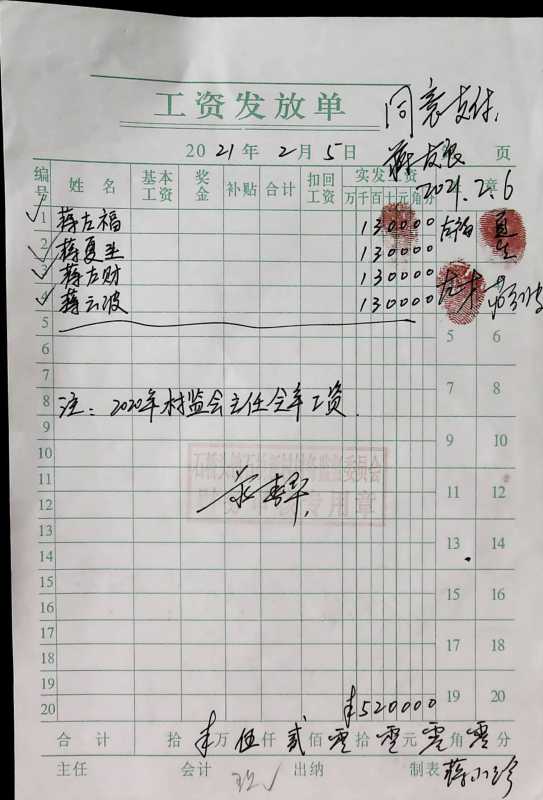 工资发放单
同意支付,
2021年2月5日
蒋友
页
2021.2.6
编号 姓名 基本工资 奖金 补贴 合计 扣回工资 实发工资 章
万千百十元角分
1 蒋左福 130000 左福
2 蒋夏生 130000 夏生
3 蒋左财 130000 左才
4 蒋云波 130000
5 5 6
6
7 7 8
8 注:2020年村监会主任全年工资.
9 9 10
10
11 11 12
12 专用章
13 13 14
14
15 15 16
16
17 17 18
18
19 ¥520000 19 20
20
合计 拾 ¥万 伍仟 贰佰 零拾 零元 零角 零分
主任 会计 出纳 制表 蒋小珍